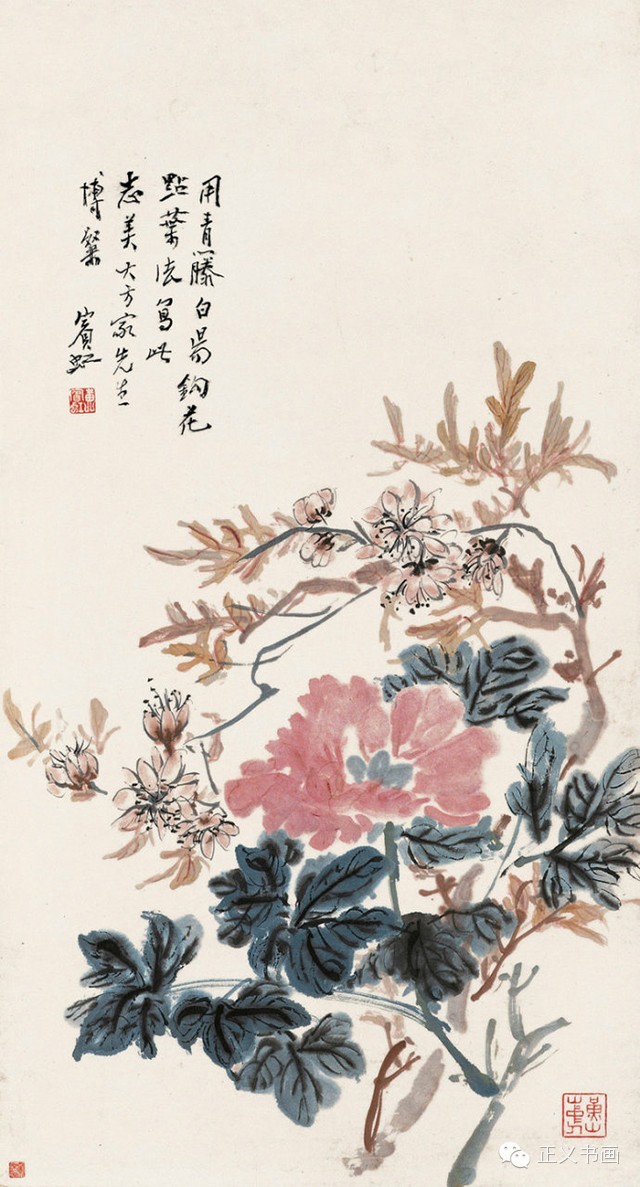 用青藤白昜鉤花
點葉法寫此
志美大方家先生
博粲
賓虹
正义书画